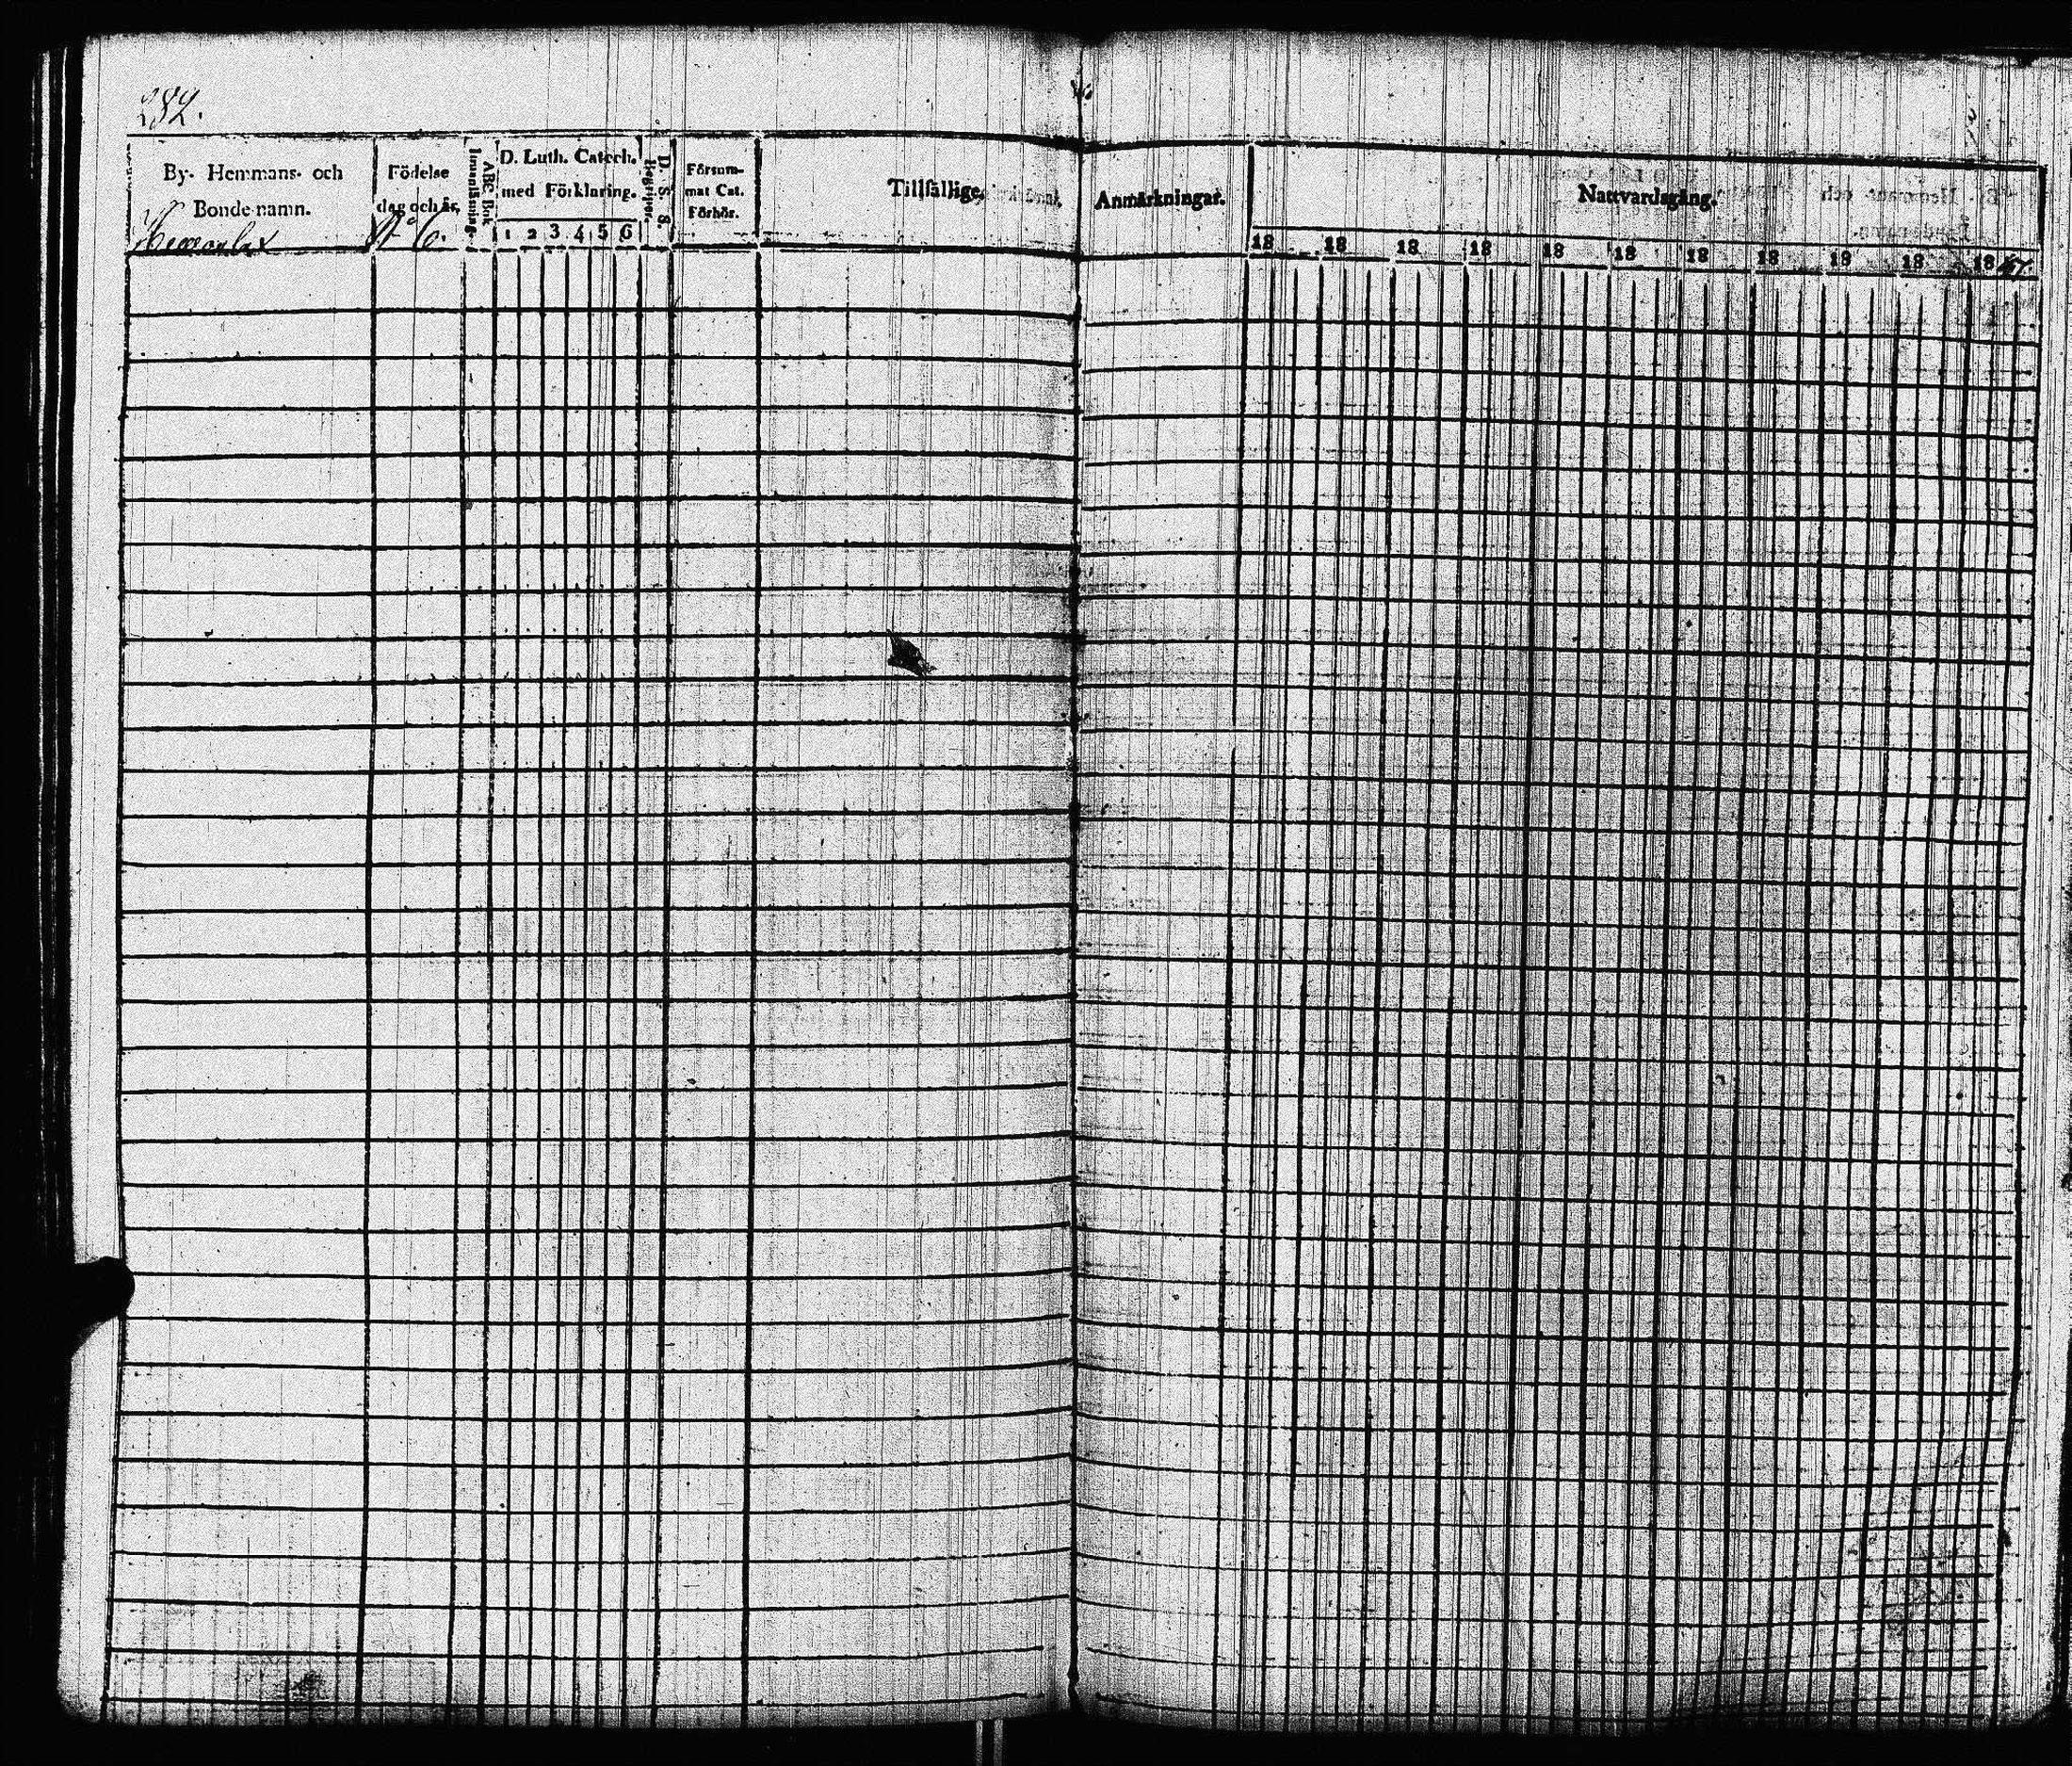 282.
By- Hemmans- och
Bonde-namn.
Födelse
dag och år.
N:o 6.
ABC Bok
Innanläsning.
D. Luth. Catech.
med Förklaring.
1 2 3 4 5 6
D. S. S.
Begreppet.
Försum-
mat Cat.
Förhör.
Tillfällige
Anmärkningar.
Nattvardsgång.
18 18 18 18 18 18 18 18 18 18 18